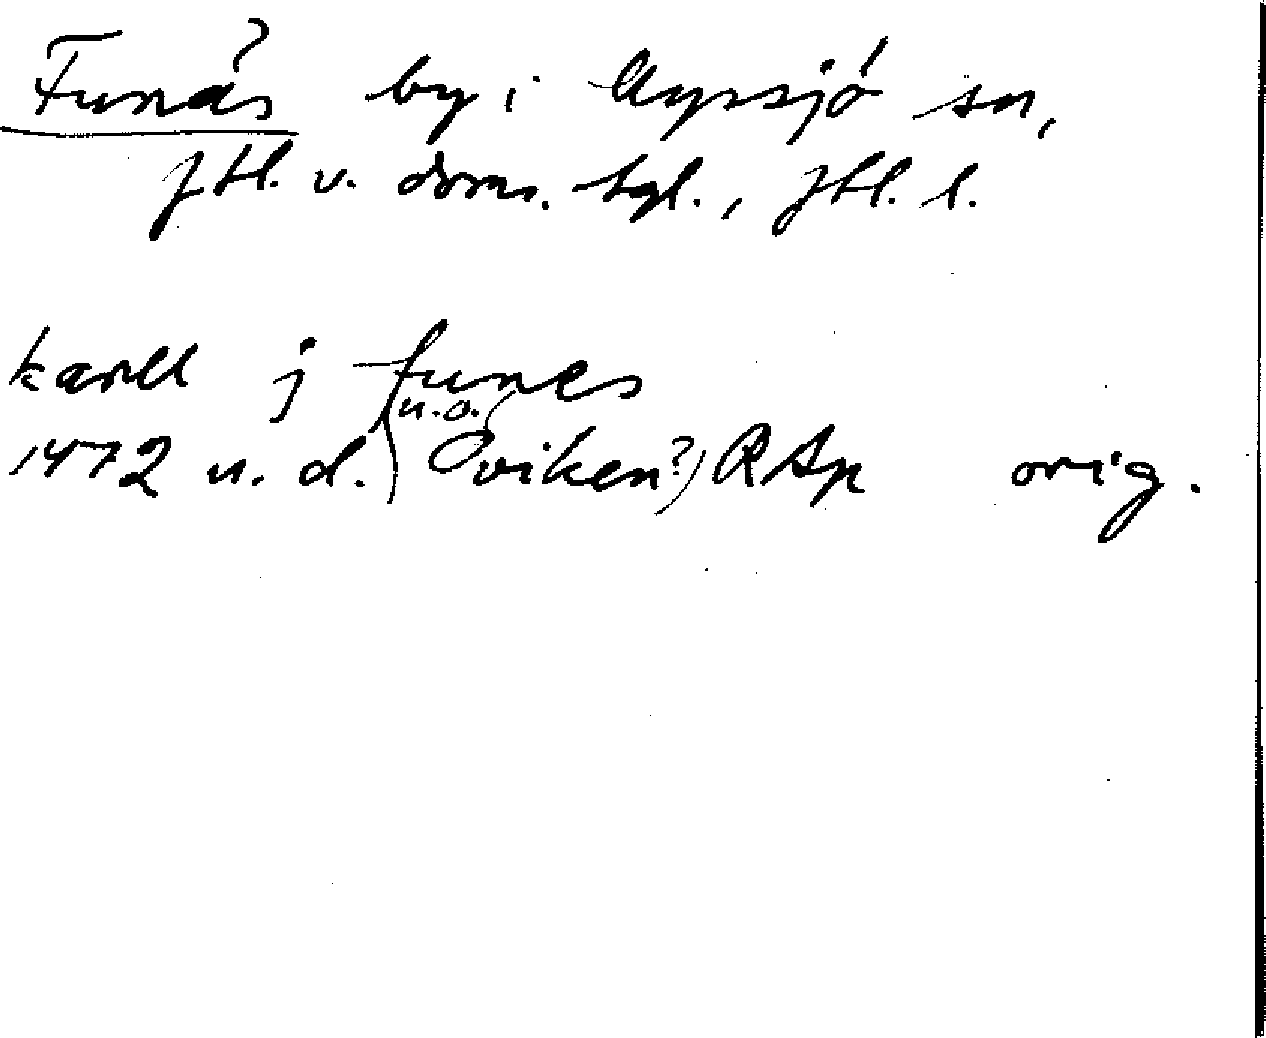 ?
Funäs by i Myssjö sn,
Jtl. v. doms. tgl., Jtl. l.
karll j funes
u.o.
1472 u. d. (Oviken?) RAp orig.